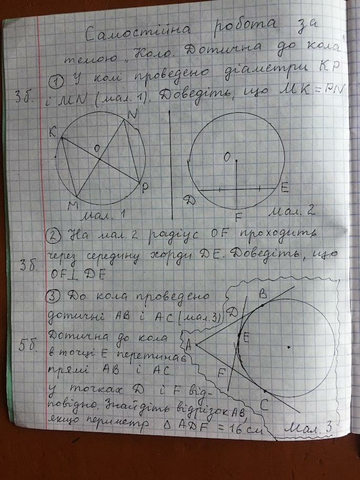 Самостійна робота за
темою „Коло. Дотична до кола"
① У колі проведено діаметри KP
3б.
і MN (мал. 1). Доведіть, що MK = PN
K
N
O
M
P
мал. 1
O
D
E
F
Мал. 2
② На мал 2 радіус OF проходить
3б
через середину хорди DE. Доведіть, що
OF⊥DE
③ До кола проведено
дотичні AB і AC (мал.3)
5б
Дотична до кола
в точці E перетинає
прямі AB і AC
у точках D і F від-
повідно. Знайдіть відрізок AB,
якщо периметр △ ADF = 16 см
A
B
D
E
F
C
Мал. 3